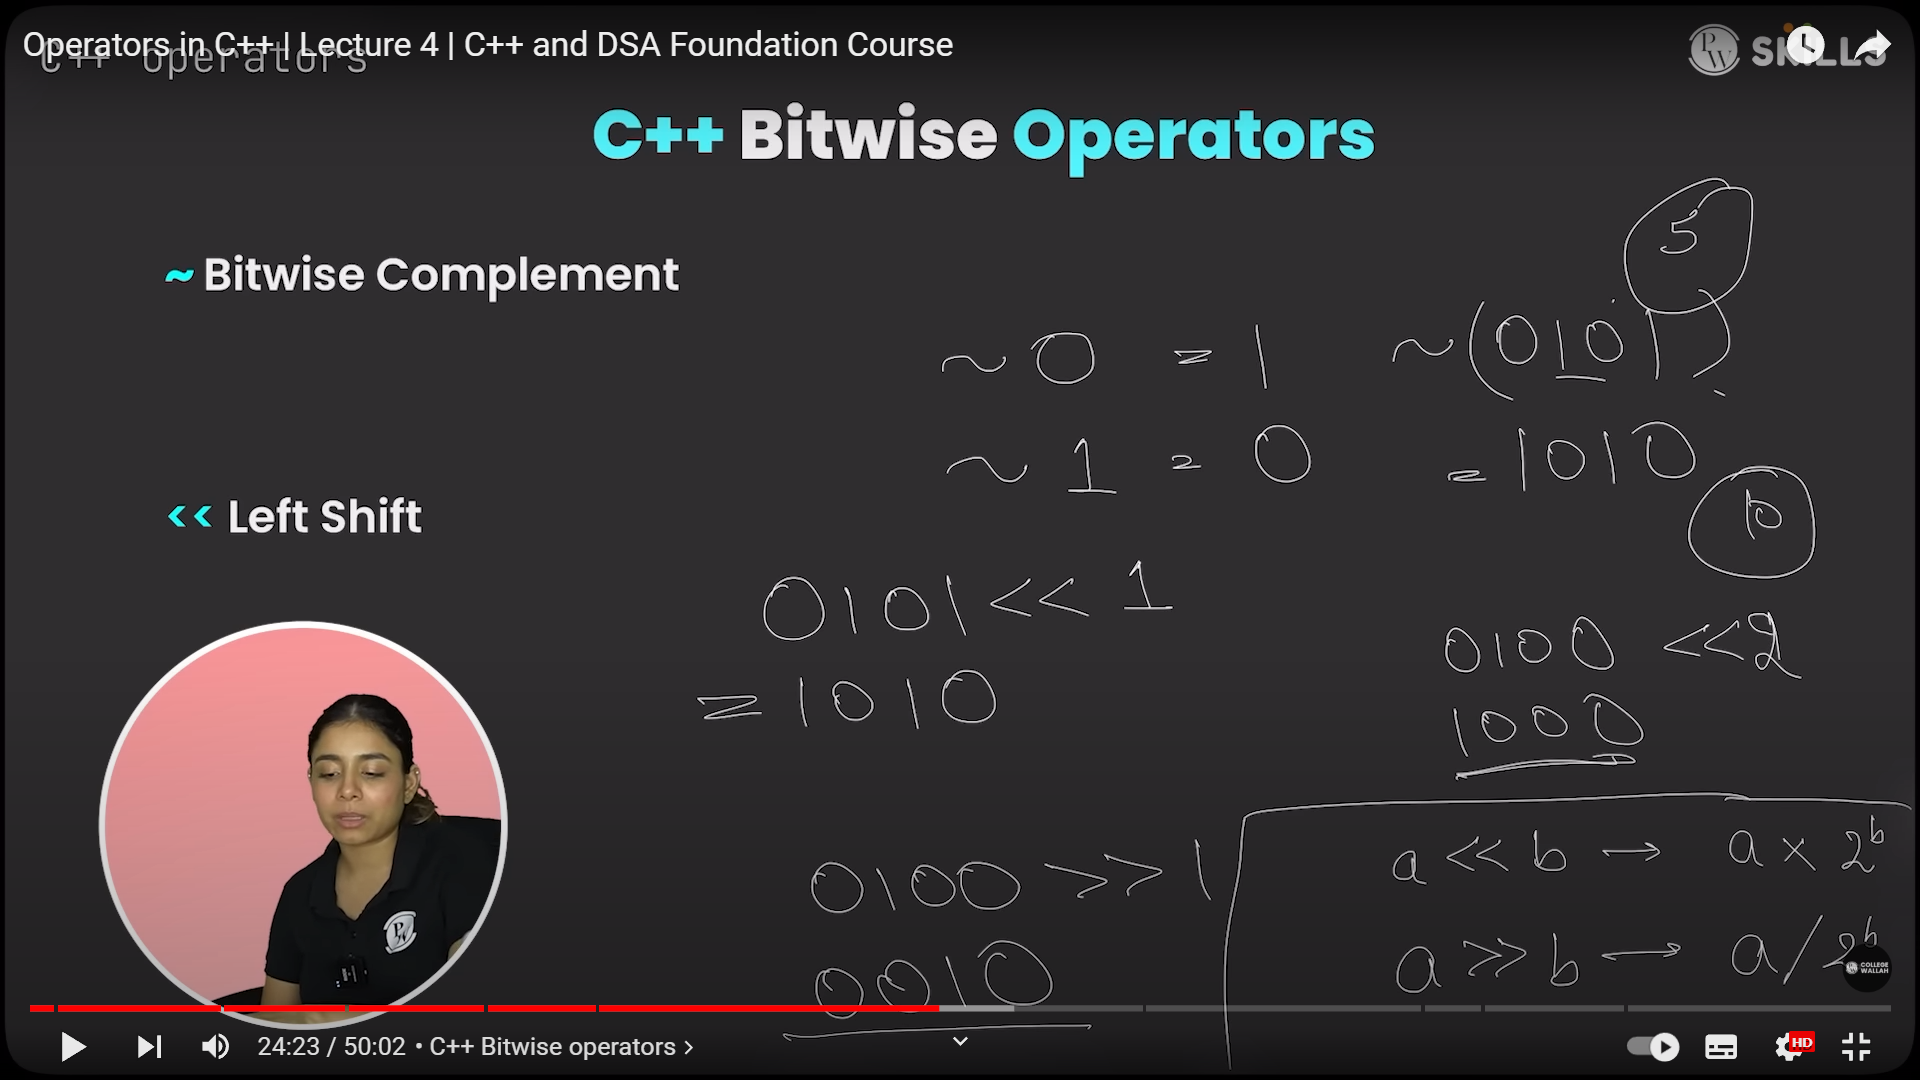 Operators in C++ | Lecture 4 | C++ and DSA Foundation Course
C++ operators
PW SKILLS
C++ Bitwise Operators
5
~ Bitwise Complement
~ 0 = 1
~ (0101)
~ 1 = 0
= 1010
10
<< Left Shift
0101 << 1
= 1010
0100 << 2
1000
0100 >> 1
0010
a << b → a × 2^b
a >> b → a / 2^b
PW
COLLEGE WALLAH
24:23 / 50:02 • C++ Bitwise operators >
HD